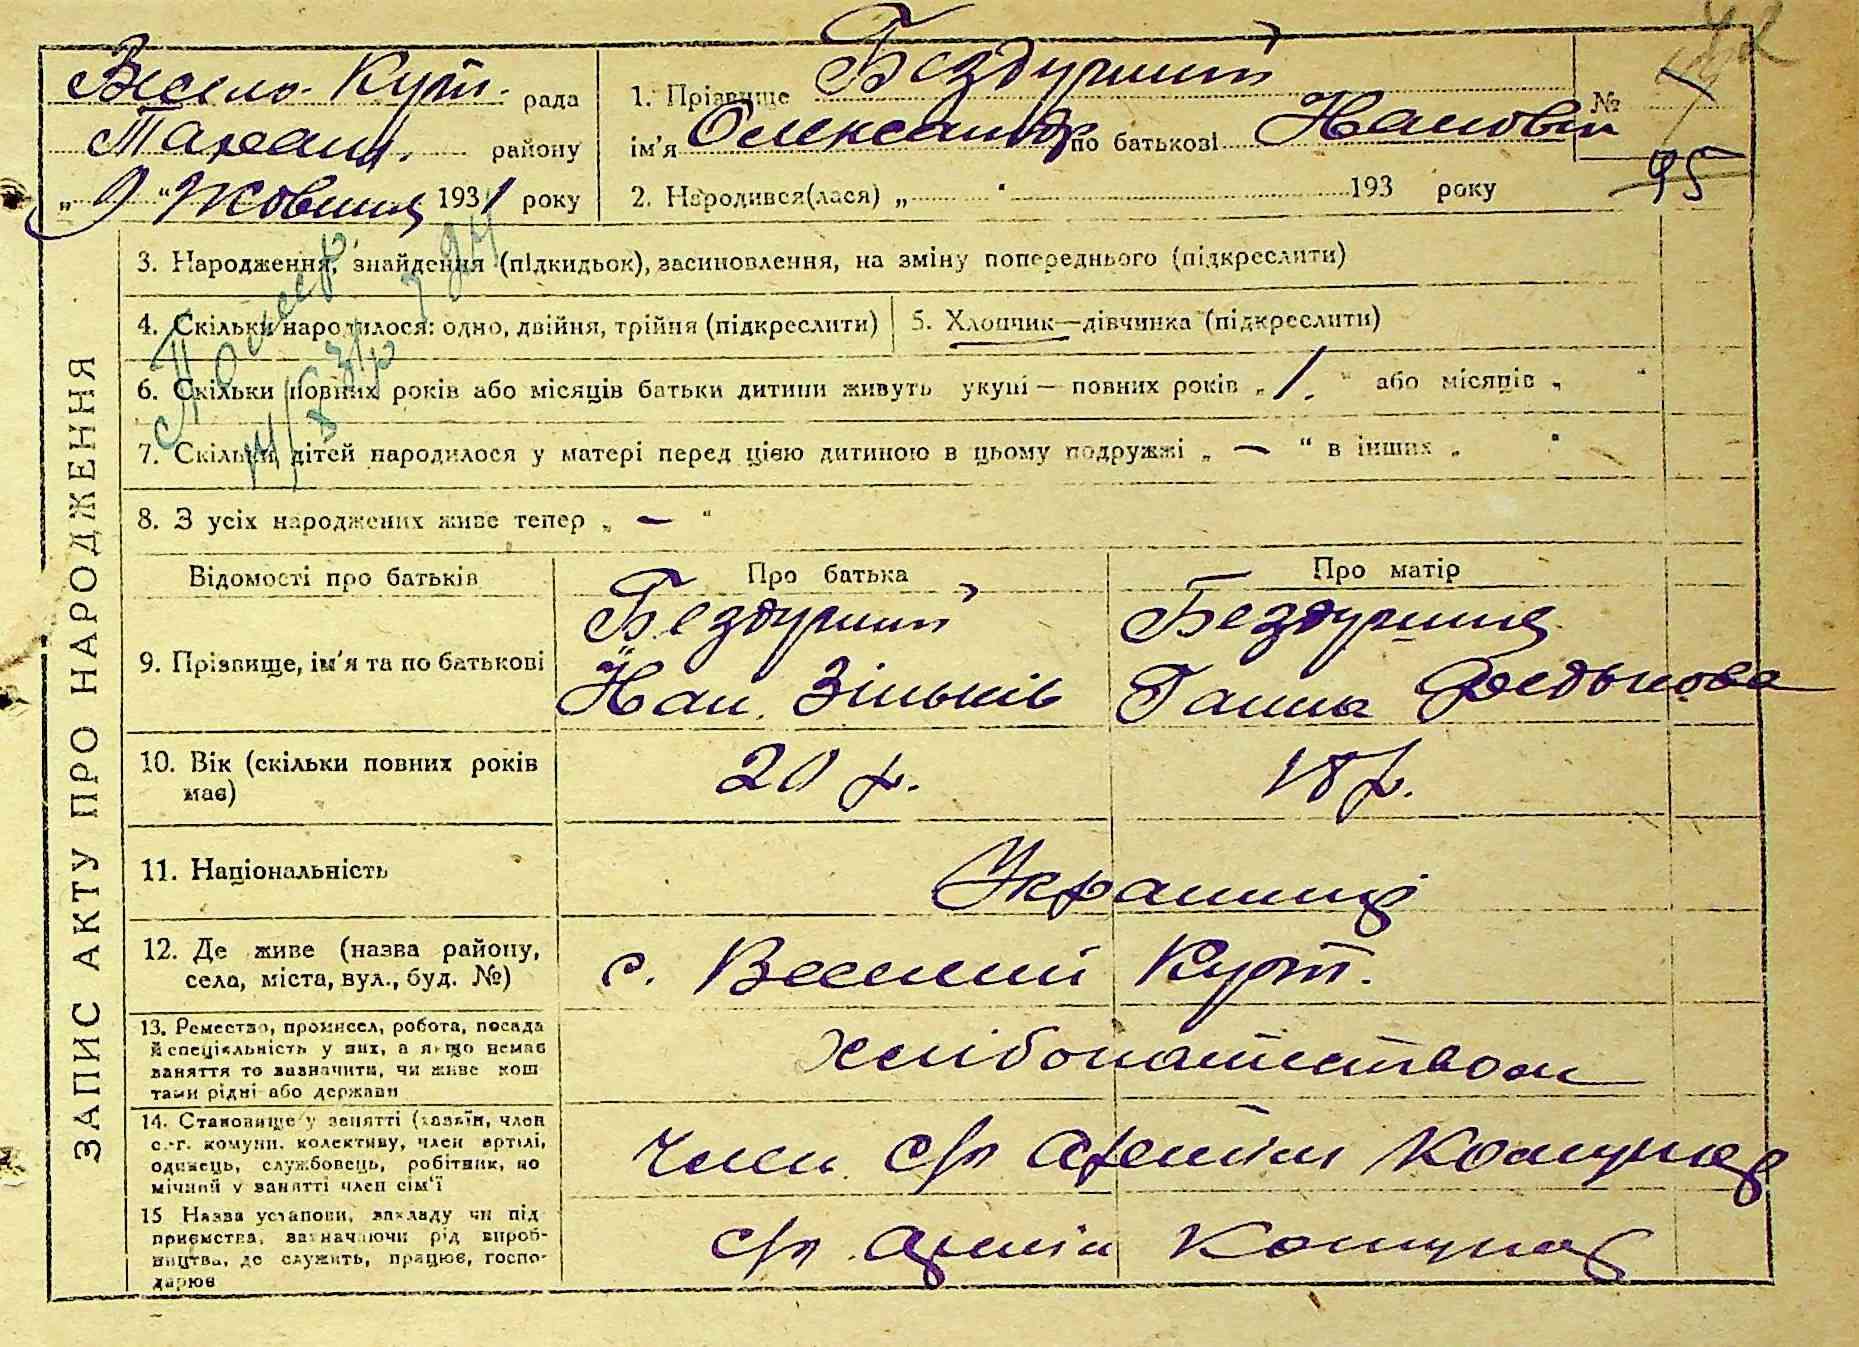 Весело-Кут. рада
Таращ. району
„9“ Жовтня 1931 року
1. Прізвище Бездушний
ім'я Олександр по батькові
2. Народився(лася) „ “ 193 року
№
95
ЗАПИС АКТУ ПРО НАРОДЖЕННЯ
3. Народження, знайдення (підкидьок), засиновлення, на зміну попереднього (підкреслити)
4. Скільки народилося: одно, двійня, трійня (підкреслити)
5. Хлопчик—дівчинка (підкреслити)
6. Скільки повних років або місяців батьки дитини живуть укупі — повних років „1.“ або місяців „ “
7. Скільки дітей народилося у матері перед цією дитиною в цьому подружжі „—“ в інших „ “
8. З усіх народжених живе тепер „—“
Помер
Відомості про батьків
Про батька
Про матір
9. Прізвище, ім'я та по батькові
Бездушний
Зіньків
Бездушна
Ганна Федькова
10. Вік (скільки повних років
має)
20 р.
18 р.
11. Національність
Українці
12. Де живе (назва району,
села, міста, вул., буд. №)
с. Веселий Кут.
13. Ремество, промисел, робота, посада
й спеціяльність у них, а якщо немає
заняття то зазначити, чи живе кош
тами рідні або держави
Хліборобством
14. Становище у занятті (хазяїн, член
с.-г. комуни, колективу, член артілі,
одинець, службовець, робітник, по
мічний у занятті член сім'ї
член с/г артіли Комуна
15 Назва установи, закладу чи під
приємства, зазначаючи рід вироб-
ництва, де служить, працює, госпо-
дарює
с/г артіл Комуна